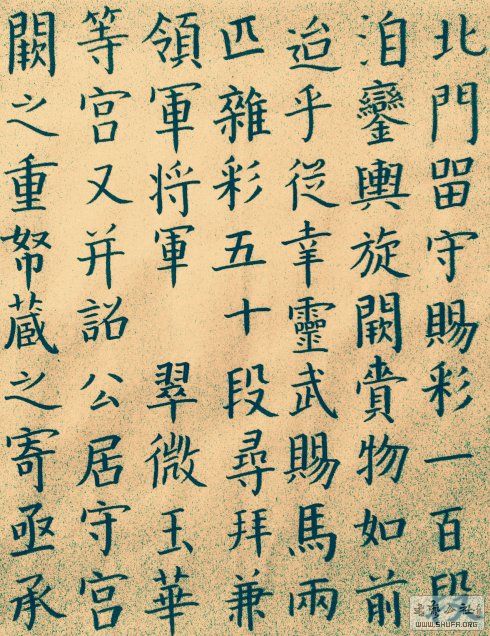 北門留守賜彩一百段
洎鑾輿旋闕賞物如前
迨乎從幸靈武賜馬兩
匹雜彩五十段尋拜兼
領軍将軍 翠微玉華
等宮又并詔公居守宮
闕之重帑蔵之寄亟承
WWW.SHUFA.ORG